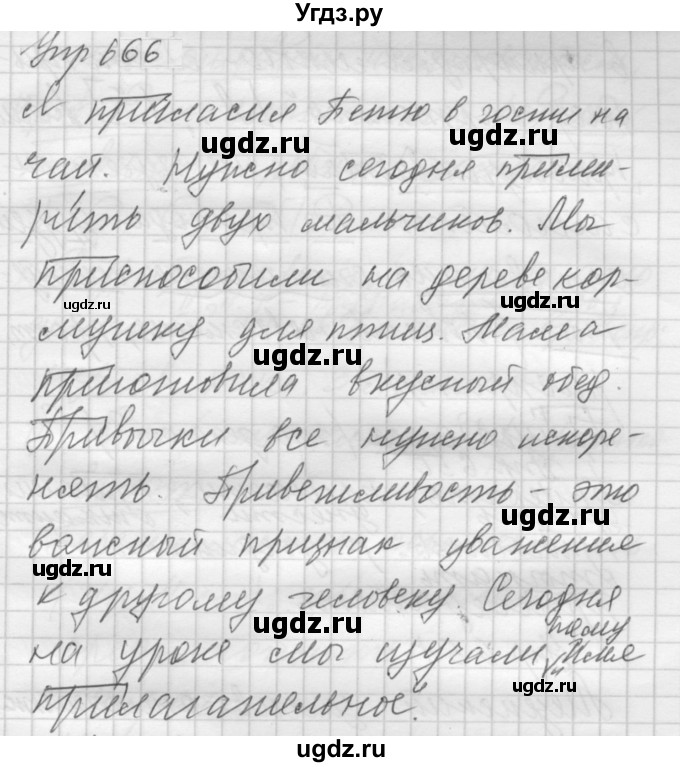 Угдз.ру
Упр 666
Я пригласил Петю в гости на
ugdz.ru ugdz.ru
чай. Нужно сегодня прими-
рить двух мальчиков. Мы
приспособили на дереве кор-
ugdz.ru ugdz.ru
мушку для птиц. Мама
ugdz.ru
приготовила вкусный обед.
Привычки все нужно искоре-
ugdz.ru
нять. Приветливость – это
ugdz.ru
важный признак уважения
ugdz.ru
к другому человеку. Сегодня
ugdz.ru
тему
на уроке мы изучали „Имя
ugdz.ru
прилагательное“.
ugdz.ru